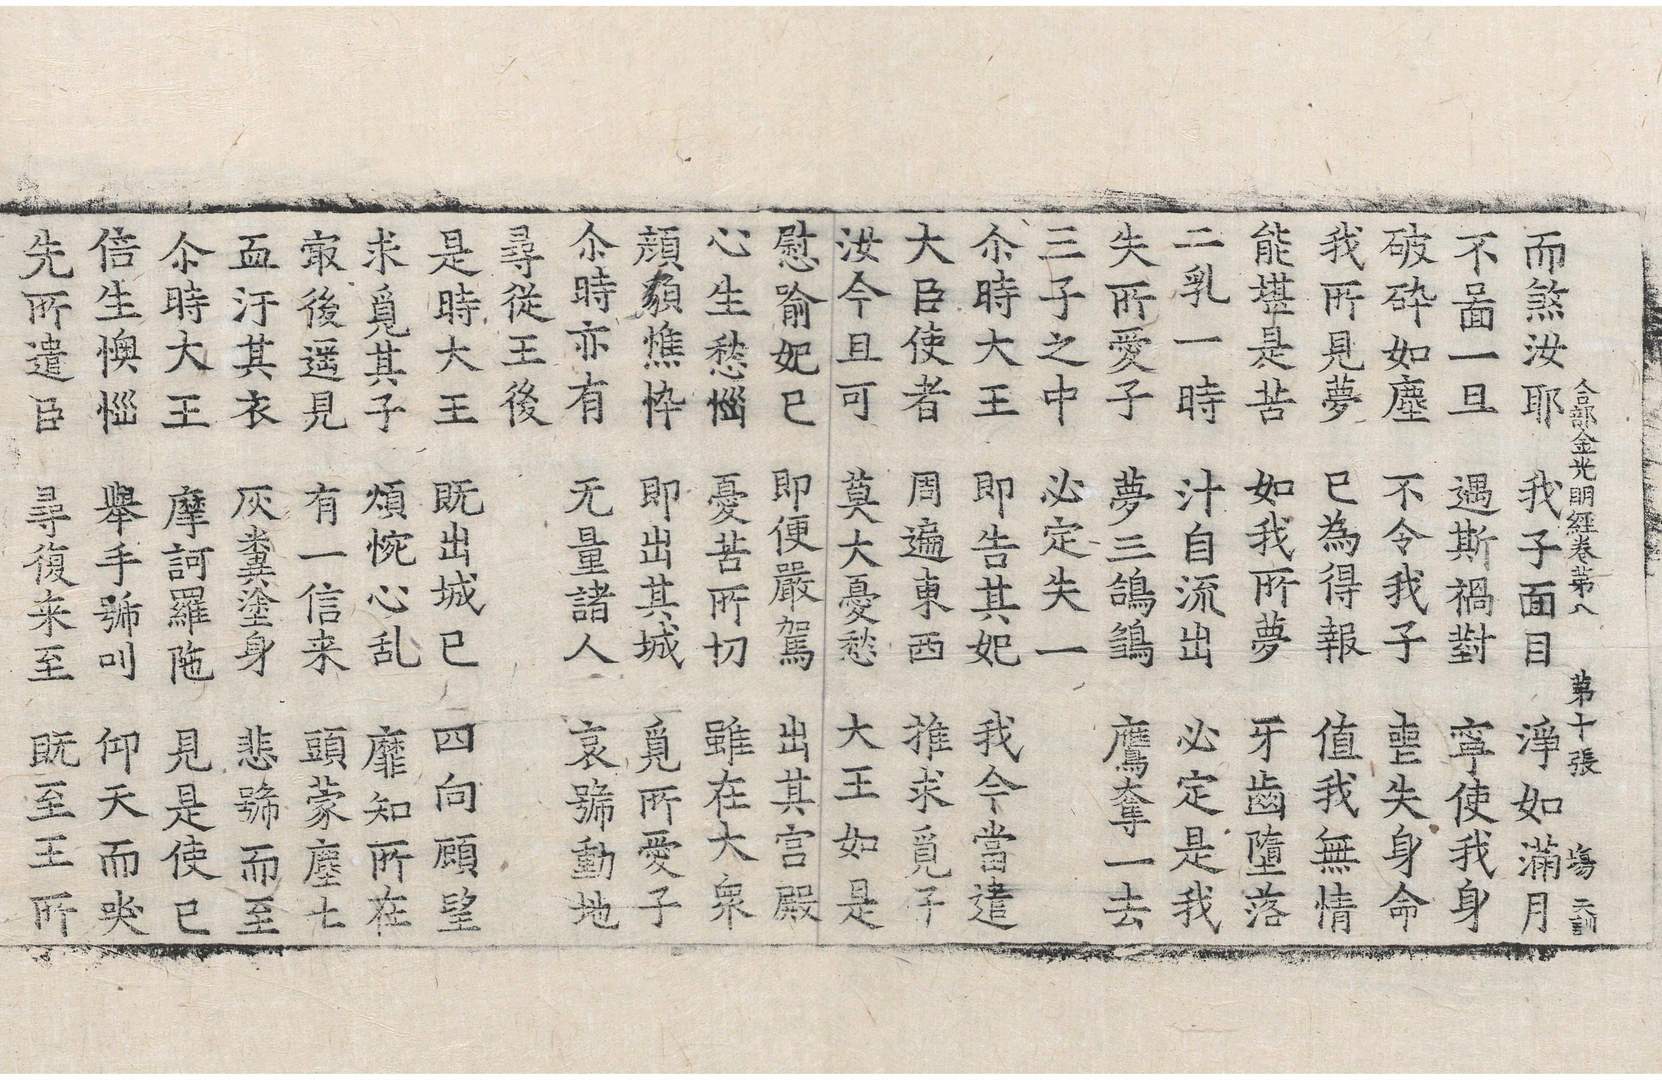 合部金光明經卷第八 第十張 塲 天訓
而煞汝耶 我子面目 淨如滿月
不啚一旦 遇斯禍對 寧使我身
破碎如塵 不令我子 喪失身命
我所見夢 已為得報 值我無情
能堪是苦 如我所夢 牙齒墮落
二乳一時 汁自流出 必定是我
失所愛子 夢三鴿鶵 鷹奪一去
三子之中 必定失一
尒時大王 即告其妃 我今當遣
大臣使者 周遍東西 推求覓子
汝今且可 莫大憂愁 大王如是
慰喻妃已 即便嚴駕 出其宮殿
心生愁惱 憂苦所切 雖在大衆
顏䫉憔悴 即出其城 覓所愛子
尒時亦有 无量諸人 哀號動地
尋從王後
是時大王 既出城已 四向顧望
求覓其子 煩惋心乱 靡知所在
㝡後遥見 有一信来 頭蒙塵土
血汙其衣 灰糞塗身 悲號而至
尒時大王 摩訶羅陁 見是使已
倍生懊惱 舉手號叫 仰天而哭
先所遣臣 尋復来至 既至王所